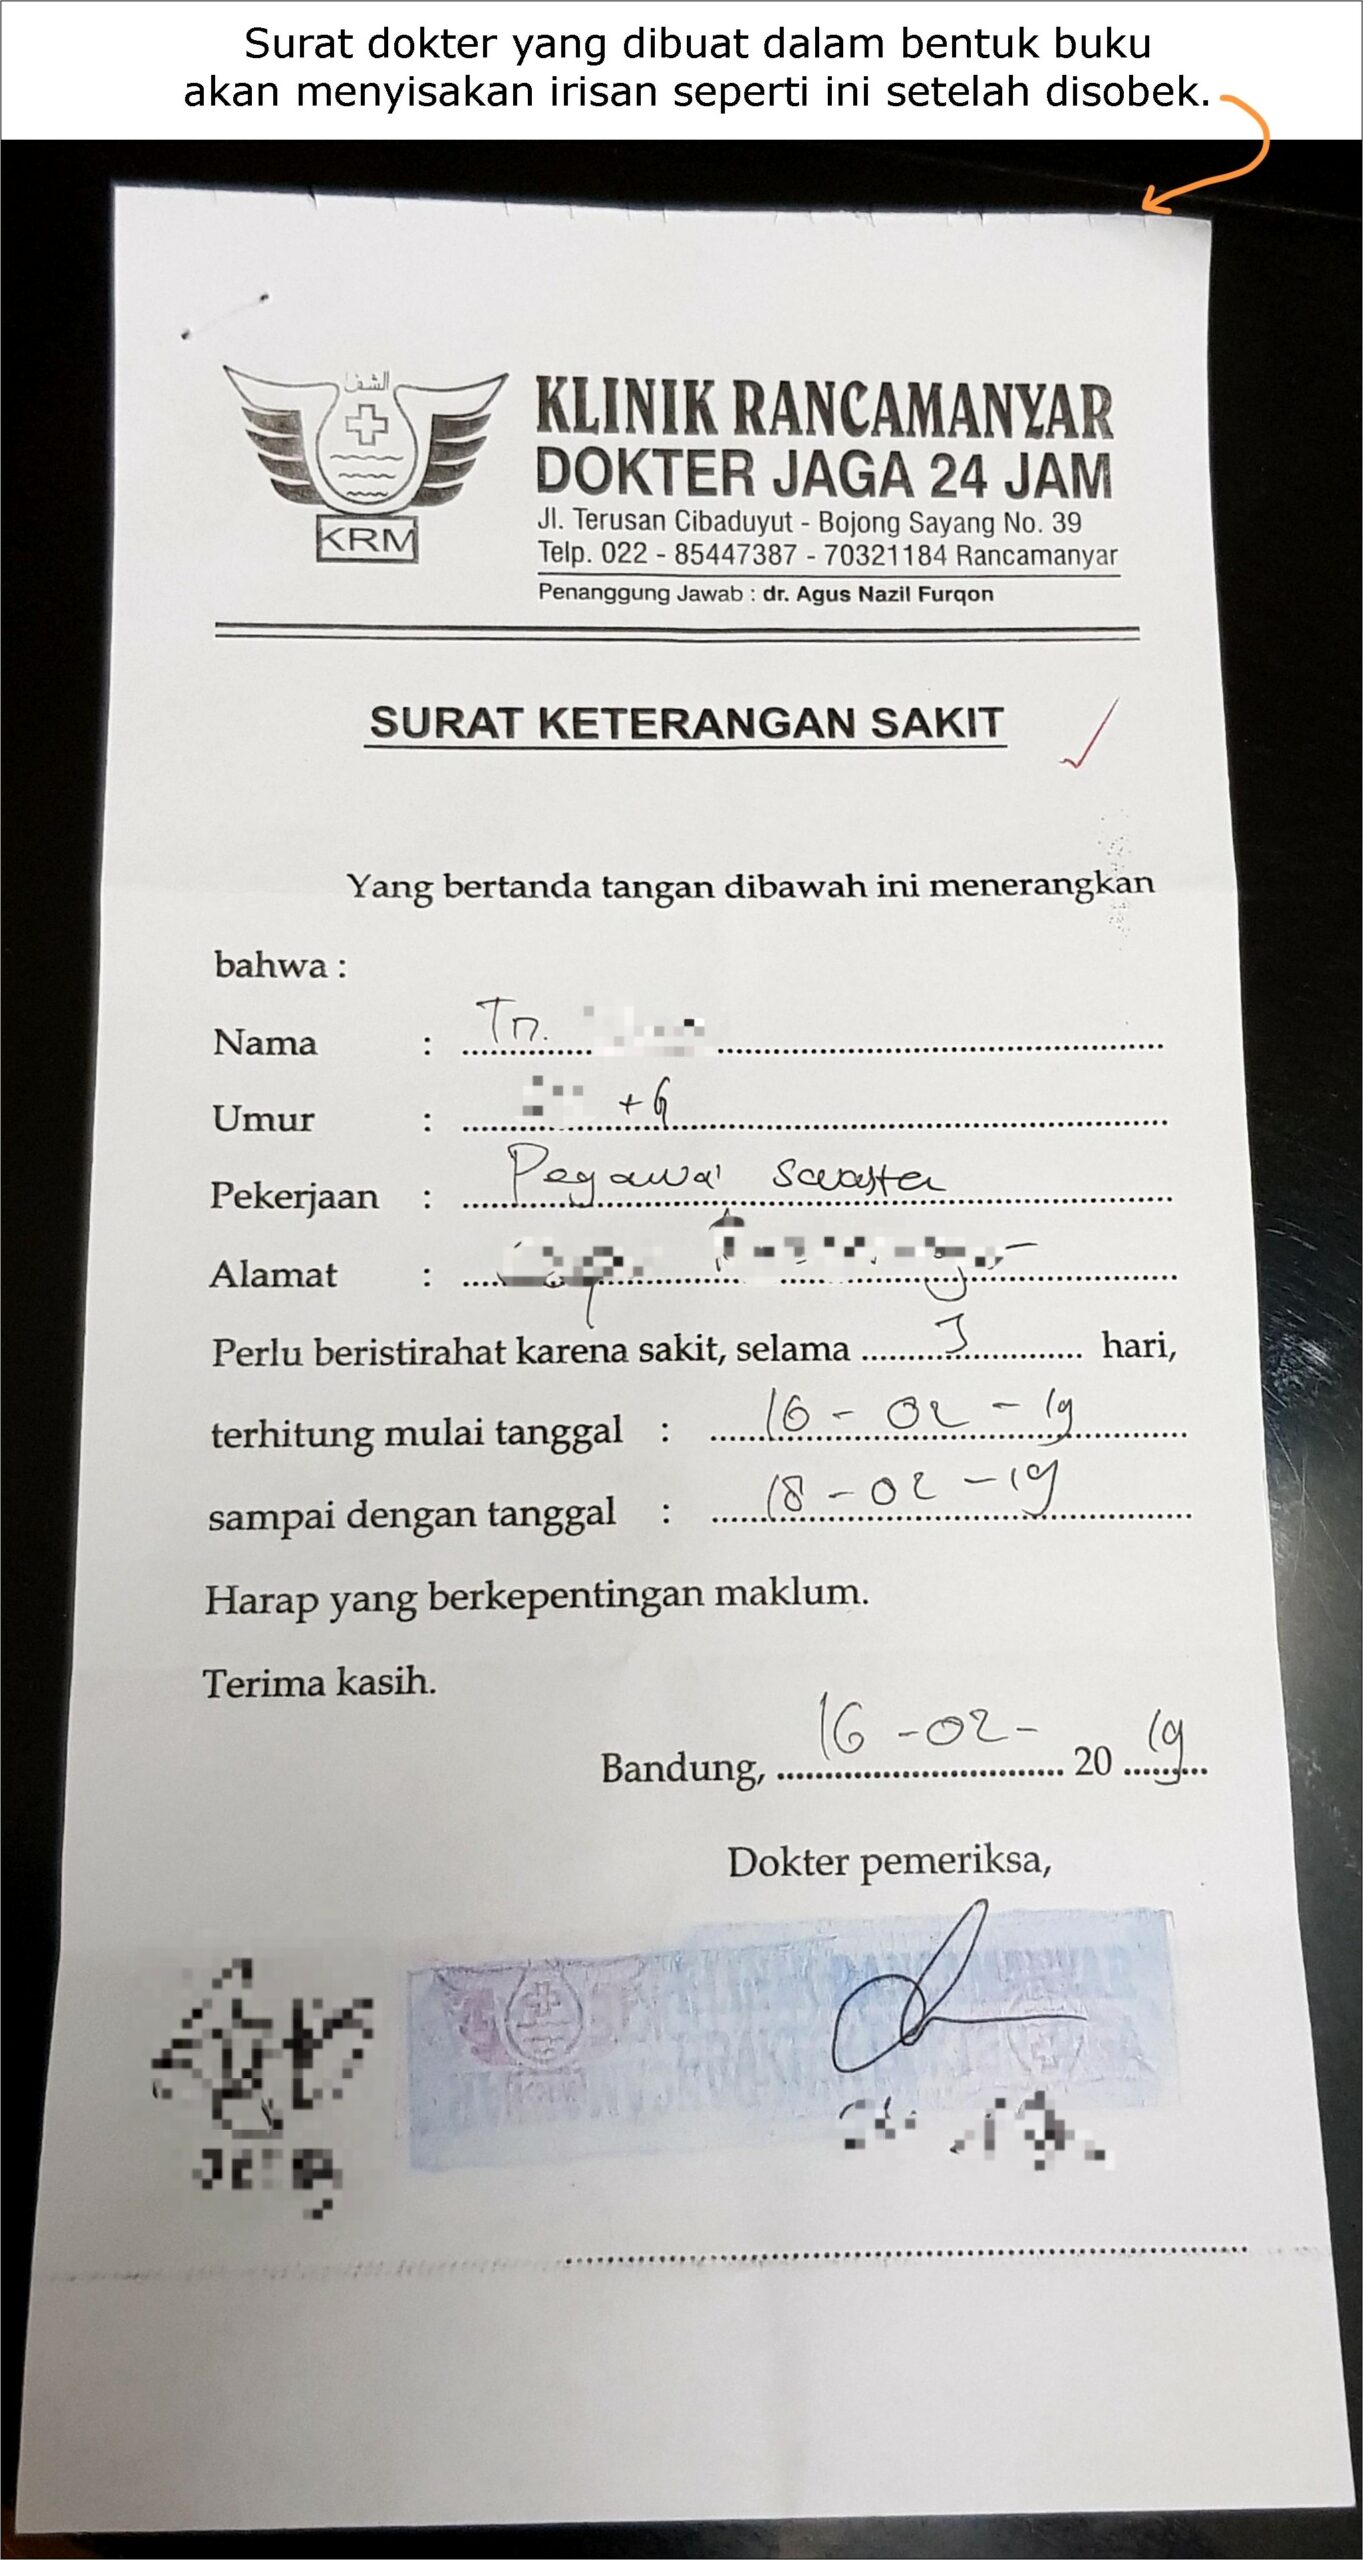 Surat dokter yang dibuat dalam bentuk buku
akan menyisakan irisan seperti ini setelah disobek.
الشفا
KRM
KLINIK RANCAMANYAR
DOKTER JAGA 24 JAM
Jl. Terusan Cibaduyut - Bojong Sayang No. 39
Telp. 022 - 85447387 - 70321184 Rancamanyar
Penanggung Jawab : dr. Agus Nazil Furqon
SURAT KETERANGAN SAKIT
Yang bertanda tangan dibawah ini menerangkan
bahwa :
Nama : Tn.
Umur : + 6
Pekerjaan : Pegawai Swasta
Alamat :
Perlu beristirahat karena sakit, selama 3 hari,
terhitung mulai tanggal : 16 - 02 - 19
sampai dengan tanggal : 18 - 02 - 19
Harap yang berkepentingan maklum.
Terima kasih.
Bandung, 16 - 02 - 20 19
Dokter pemeriksa,